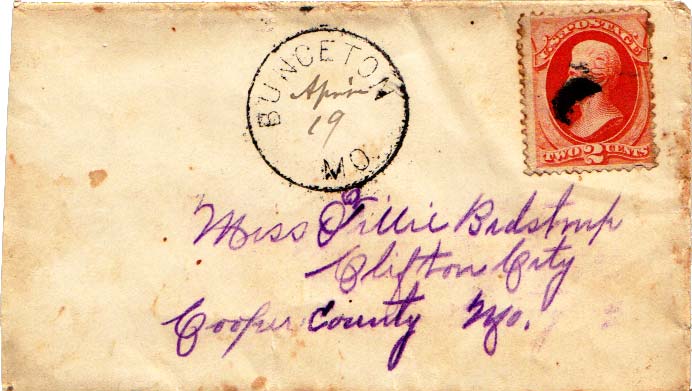 BUNCETON
April
19
MO.
U.S. POSTAGE
TWO 2 CENTS
Miss Tillie
Clifton City
Cooper County Mo.